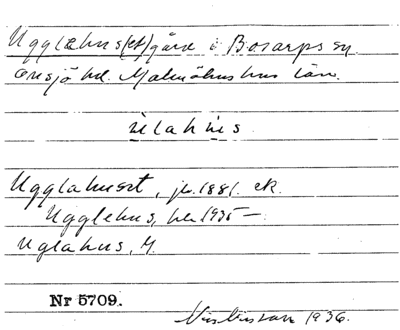 Ugglehus(et) gård i Bosarps sn
Onsjö hd. Malmöhus län.
ùlahùs
Ugglahuset, jb. 1881. ek.
Ugglehus, 1935 —
Uglahus, M
Nr 5709.
1936.